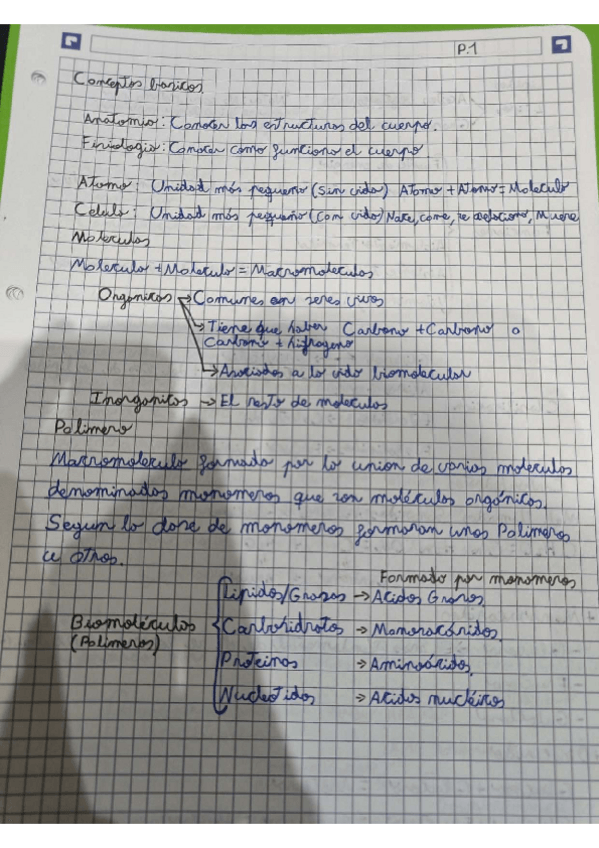 P.1
Conceptos basicos
Anatomia: Conocer las estructuras del cuerpo.
Fisiologia: Conocer como funciona el cuerpo
Atomo: Unidad más pequeña (sin vida) Atomo + Atomo = Molecula
Celula: Unidad más pequeña (con vida) Nace, come, se relaciona, Muere
Moleculas
Molecula + Molecula = Macromoleculas
Organicas → Comunes en seres vivos
→ Tiene que haber Carbono + Carbono o
Carbono + hidrogeno
→ Asociadas a la vida biomoleculas
Inorganicas → El resto de moleculas
Polimero
Macromolecula formada por la union de varias moleculas
denominadas monomeros que son moléculas orgánicas.
Segun la clase de monomeros formaran unos Polimeros
u otros.
Formado por monomeros
Biomoléculas
(Polimeros)
Lipidos/Grasas → Acidos Grasos
Carbohidratos → Monosacáridos
Proteinas → Aminoácidos
Nucleotidos → Acidos nucléicos